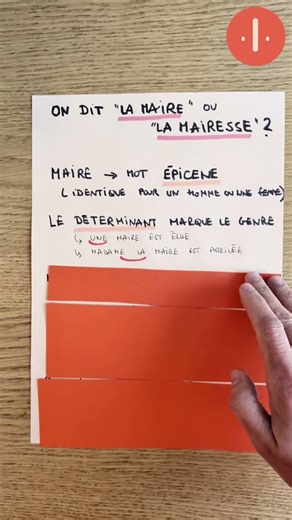 ON DIT "LA MAIRE" OU
"LA MAIRESSE"?
MAIRE → MOT ÉPICENE
(IDENTIQUE POUR UN HOMME OU UNE FEMME)
LE DÉTERMINANT MARQUE LE GENRE
↳ UNE MAIRE EST ÉLUE
↳ MADAME LA MAIRE EST ARRIVÉE